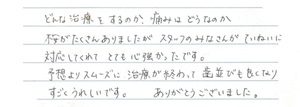 どんな治療をするのか、痛みはどうなのか
不安がたくさんありましたが スタッフのみなさんがていねいに
対応してくれて とても心強かったです。
予想よりスムーズに 治療が終わって 歯並びも良くなり
すごくうれしいです。 ありがとうございました。